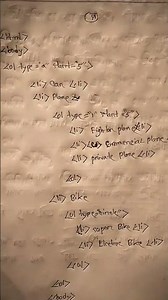 <html>
<body>
<ol type="a" start="5">
<li> Car </li>
<li> Plane
<ol type="1" start="5">
<li> Fighter plan </li>
<li> Commercial plane
<li> private Plane </li>
</ol>
<li> Bike
<ol type="circle">
<li> super Bike </li>
<li> Electric Bike </li>
</ol>
</ol>
</body>